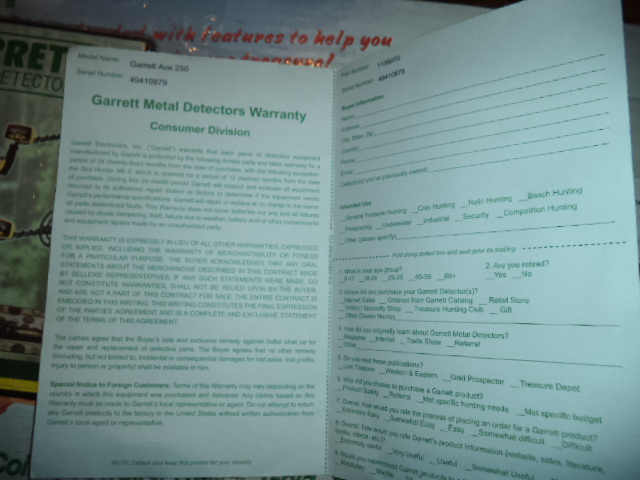 RRET
DETECTO
with features to help you
Model Name: Garrett Ace 250
Serial Number: 49410879
Garrett Metal Detectors Warranty
Consumer Division
Garrett Electronics, Inc. ("Garrett") warrants that each piece of detection equipment
manufactured by Garrett is protected by the following limited parts and labor warranty for a
period of 24 (twenty-four) months from the date of purchase, with the following exception
the Sea Hunter Mk II, which is covered for a period of 12 (twelve) months from the date
of purchase. During this 24 month period Garrett will inspect and evaluate all equipment
returned to its authorized repair station or factory to determine if the equipment meets
Garrett's performance specifications. Garrett will repair or replace at no charge to the owner
all parts determined faulty. This Warranty does not cover batteries nor any and all failures
caused by abuse, tampering, theft, failure due to weather, battery acid or other contaminants
and equipment repairs made by an unauthorized party.
THIS WARRANTY IS EXPRESSLY IN LIEU OF ALL OTHER WARRANTIES, EXPRESSED
OR IMPLIED, INCLUDING THE WARRANTY OF MERCHANTABILITY OR FITNESS
FOR A PARTICULAR PURPOSE. THE BUYER ACKNOWLEDGES THAT ANY ORAL
STATEMENTS ABOUT THE MERCHANDISE DESCRIBED IN THIS CONTRACT MADE
BY SELLERS' REPRESENTATIVES, IF ANY SUCH STATEMENTS WERE MADE, DO
NOT CONSTITUTE WARRANTIES, SHALL NOT BE RELIED UPON BY THE BUYER,
AND ARE NOT A PART OF THIS CONTRACT FOR SALE. THE ENTIRE CONTRACT IS
EMBODIED IN THIS WRITING. THIS WRITING CONSTITUTES THE FINAL EXPRESSION
OF THE PARTIES AGREEMENT AND IS A COMPLETE AND EXCLUSIVE STATEMENT
OF THE TERMS OF THIS AGREEMENT.
The parties agree that the Buyer's sole and exclusive remedy against Seller shall be for
the repair and replacement of defective parts. The Buyer agrees that no other remedy
(including, but not limited to, incidental or consequential damages for lost sales, lost profits,
injury to person or property) shall be available to him.
Special Notice to Foreign Customers: Terms of this Warranty may vary depending on the
country in which this equipment was purchased and delivered. Any claims based on this
Warranty must be made to Garrett's local representative or agent. Do not attempt to return
any Garrett products to the factory in the United States without written authorization from
Garrett's local agent or representative.
Detach and keep this portion for your records
Part Number: 1139070
Serial Number: 49410879
Buyer Information
Name
Address
City, State, Zip
Country
Phone
Email
Detector(s) you've previously owned
Intended Use
__General Treasure Hunting __Coin Hunting __Relic Hunting __Beach Hunting
__Prospecting __Underwater __Industrial __Security __Competition Hunting
__Other (please specify)
Fold along dotted line and seal prior to mailing
1. What is your age group?
__0-17 __18-24 __25-39 __40-59 __60+
2. Are you retired?
__Yes __No
3. Where did you purchase your Garrett Detector(s)?
__Internet Sales __Ordered from Garrett Catalog __Retail Store
__Hobby / Specialty Shop __Treasure Hunting Club __Gift
__Other (Dealer Name)
4. How did you originally learn about Garrett Metal Detectors?
__Magazine __Internet __Trade Show __Referral
__Other
5. Do you read these publications?
__Lost Treasure __Western & Eastern __Gold Prospector __Treasure Depot
6. Why did you choose to purchase a Garrett product?
__Product Quality __Referral __Met specific hunting needs __Met specific budget
7. Overall, how would you rate the process of placing an order for a Garrett product?
__Extremely Easy __Somewhat Easy __Easy __Somewhat difficult __Difficult
8. Overall, how would you rate Garrett's product information (website, sales, literature,
books, videos, etc.)?
__Extremely useful __Very Useful __Useful __Somewhat Useful
9. Would you recommend Garrett products to
__Absolutely __Maybe